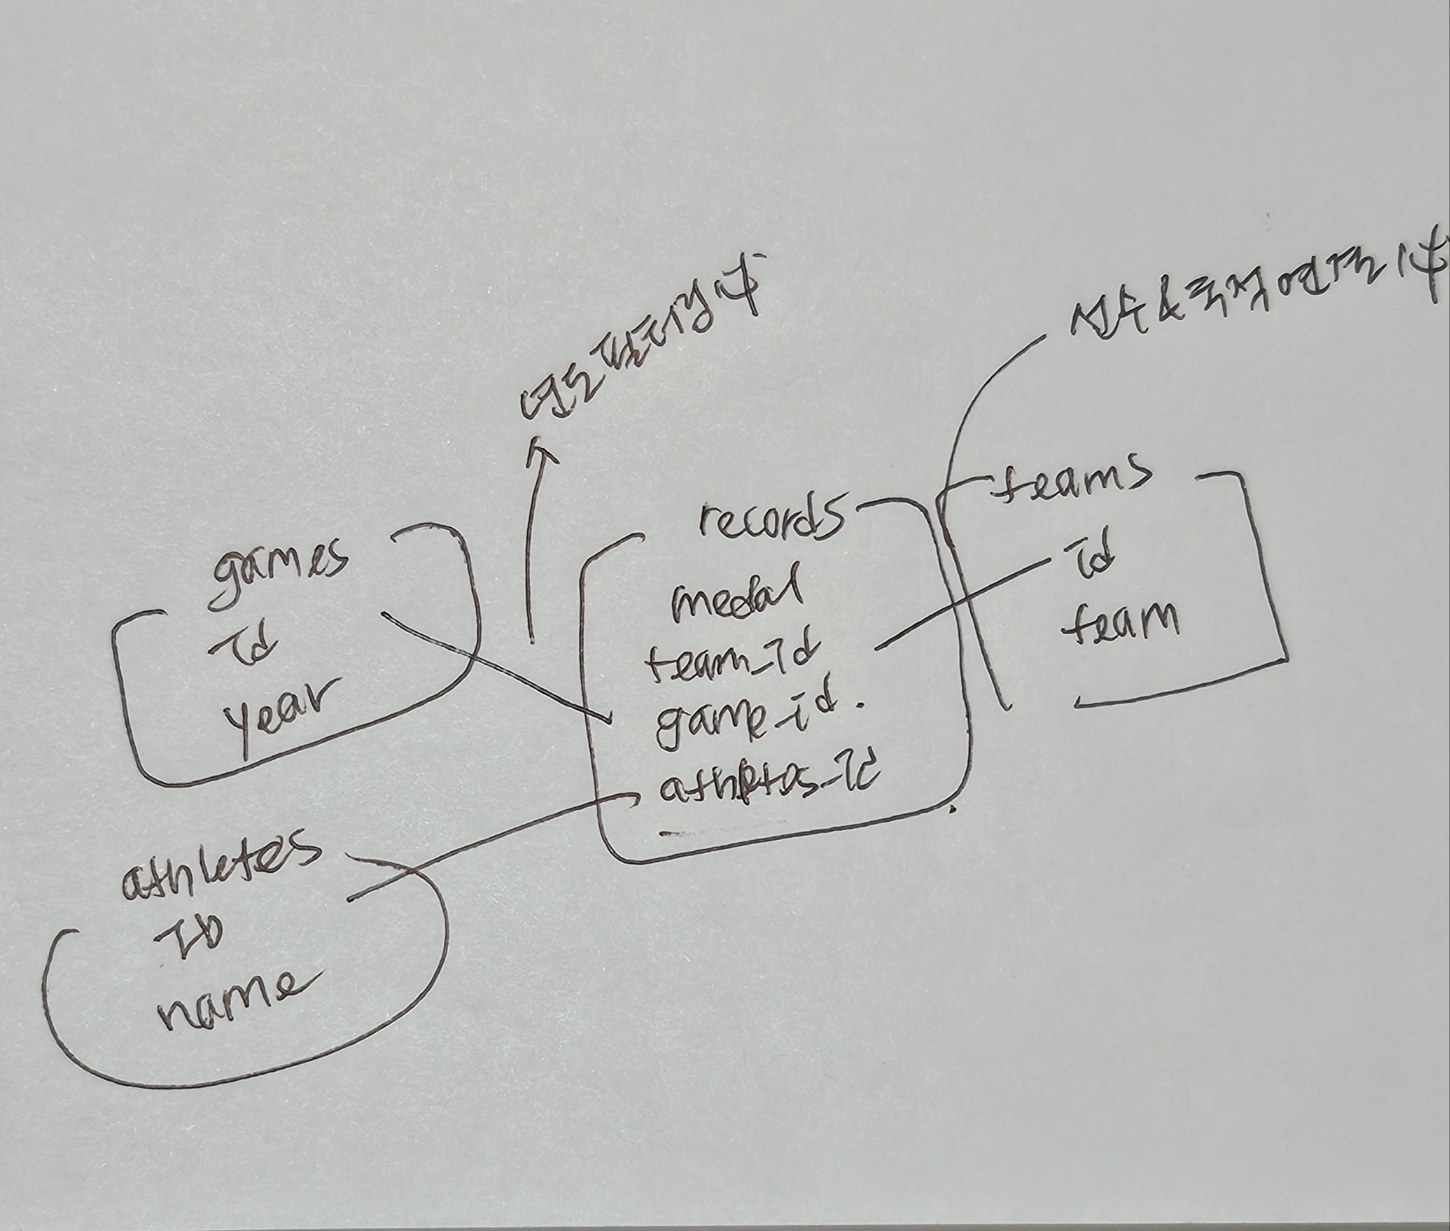 연도필터링사
선수&국적연결사
games
id
year
records
medal
team_id
game_id.
athletes_id
teams
id
team
athletes
ID
name